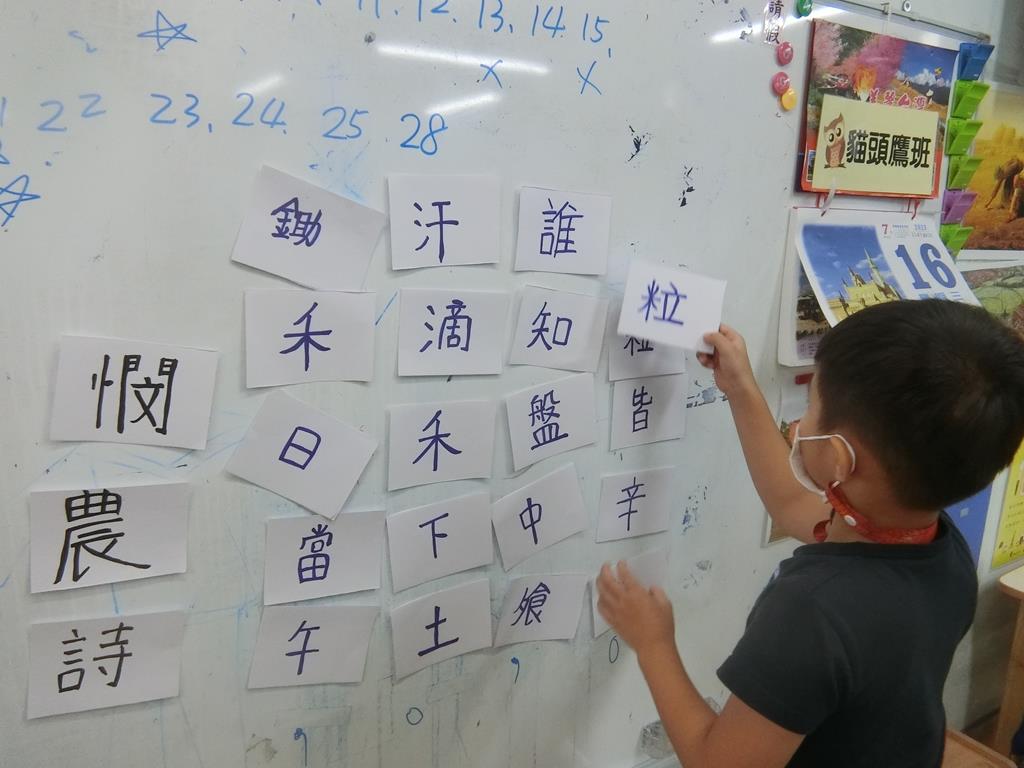 11. 12. 13. 14. 15.
x x
22 23. 24. 25 28
請假
貓頭鷹班
7
16
憫農詩
鋤禾日當午
汗滴禾下土
誰知盤中飧
粒
粒皆辛